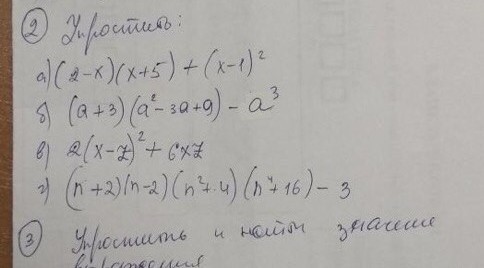 2 Упростить:
а) (2-x)(x+5) + (x-1)²
б) (a+3)(a²-3a+9) - a³
в) 2(x-7)² + 6x7
г) (n+2)(n-2)(n²+4)(n⁴+16) - 3
3 Упростить и найти значение
выражения